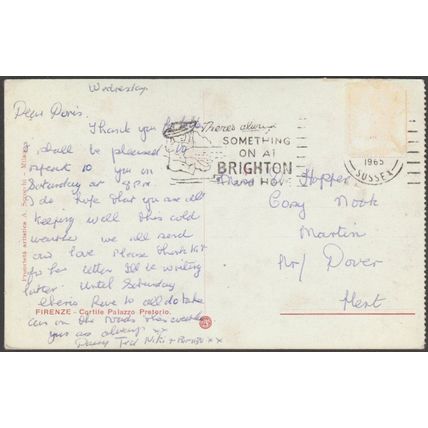 Wednesday
Dear Doris.
Thank you
I shall be pleased to
10 you on
Saturday at 8 P.M.
I do hope that you are all
keeping well this cold
weather we all send
our love Please thank Kit
for her letter I'll be writing
later. Until Saturday
love to all do take
care on the roads this weather
yours as always xx
Ted Niki + xx
There's always
SOMETHING
ON AT
BRIGHTON
HOVE
1965
SUSSEX
Hopper
Cosy Nook
Martin
Nr/ Dover
Kent
Proprietà artistica A. - Milano
FIRENZE - Cortile Palazzo Pretorio.